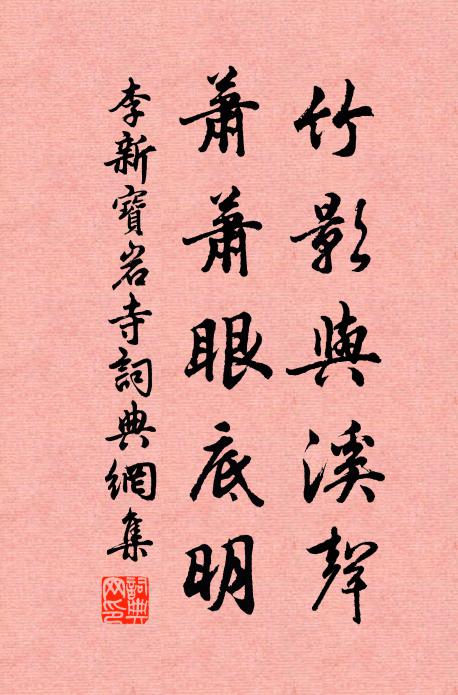 竹影與溪聲
蕭蕭眼底明
李新寶岩寺詞典網集
詞典網印